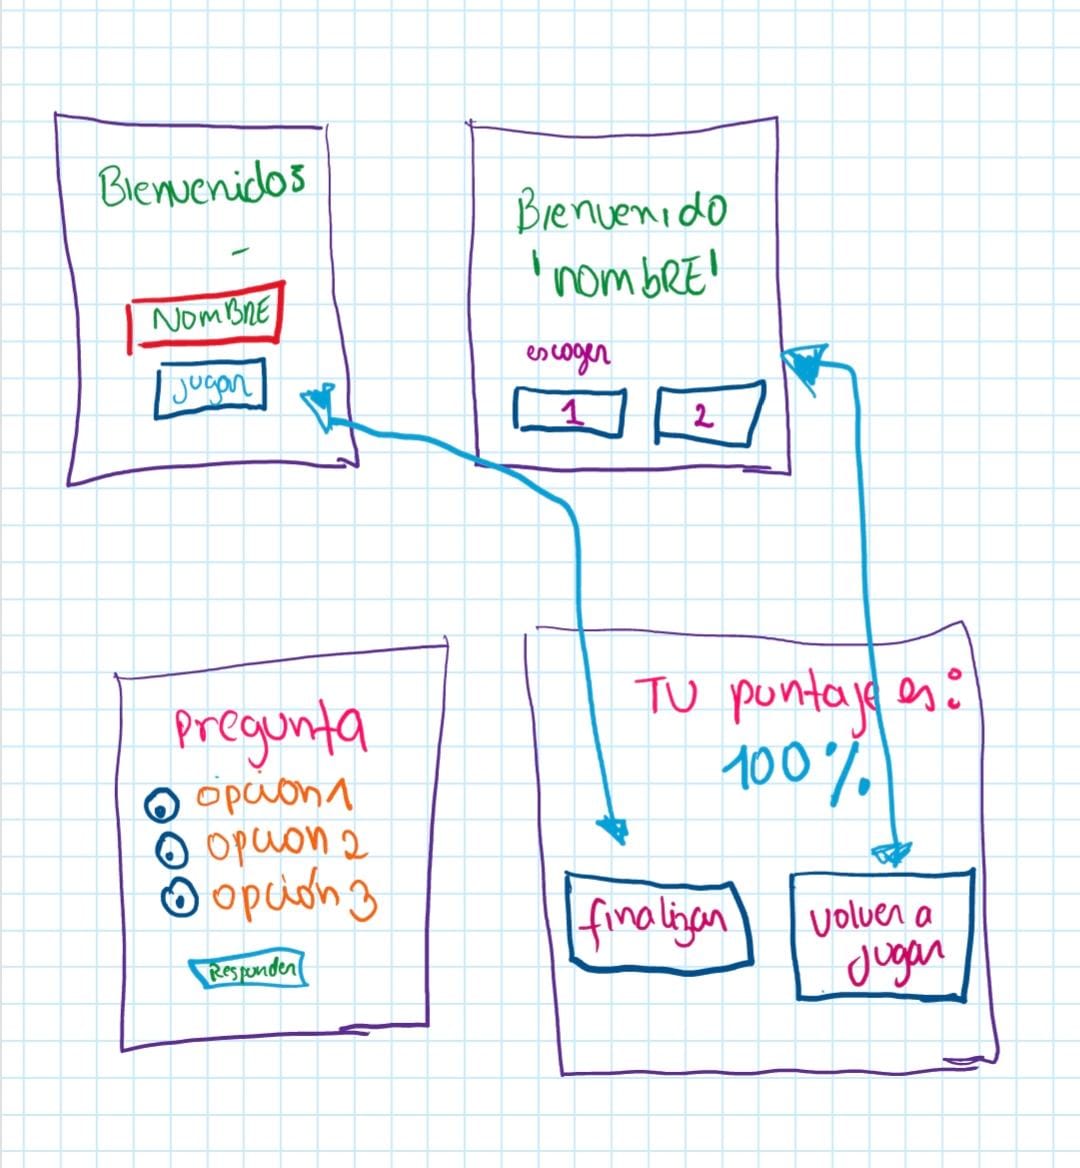 Bienvenidos
NOMBRE
jugar
Bienvenido
'nombRE'
escoger
1 2
pregunta
opcion 1
opcion 2
opción 3
Responder
TU puntaje es:
100%
finalizar
volver a
jugar